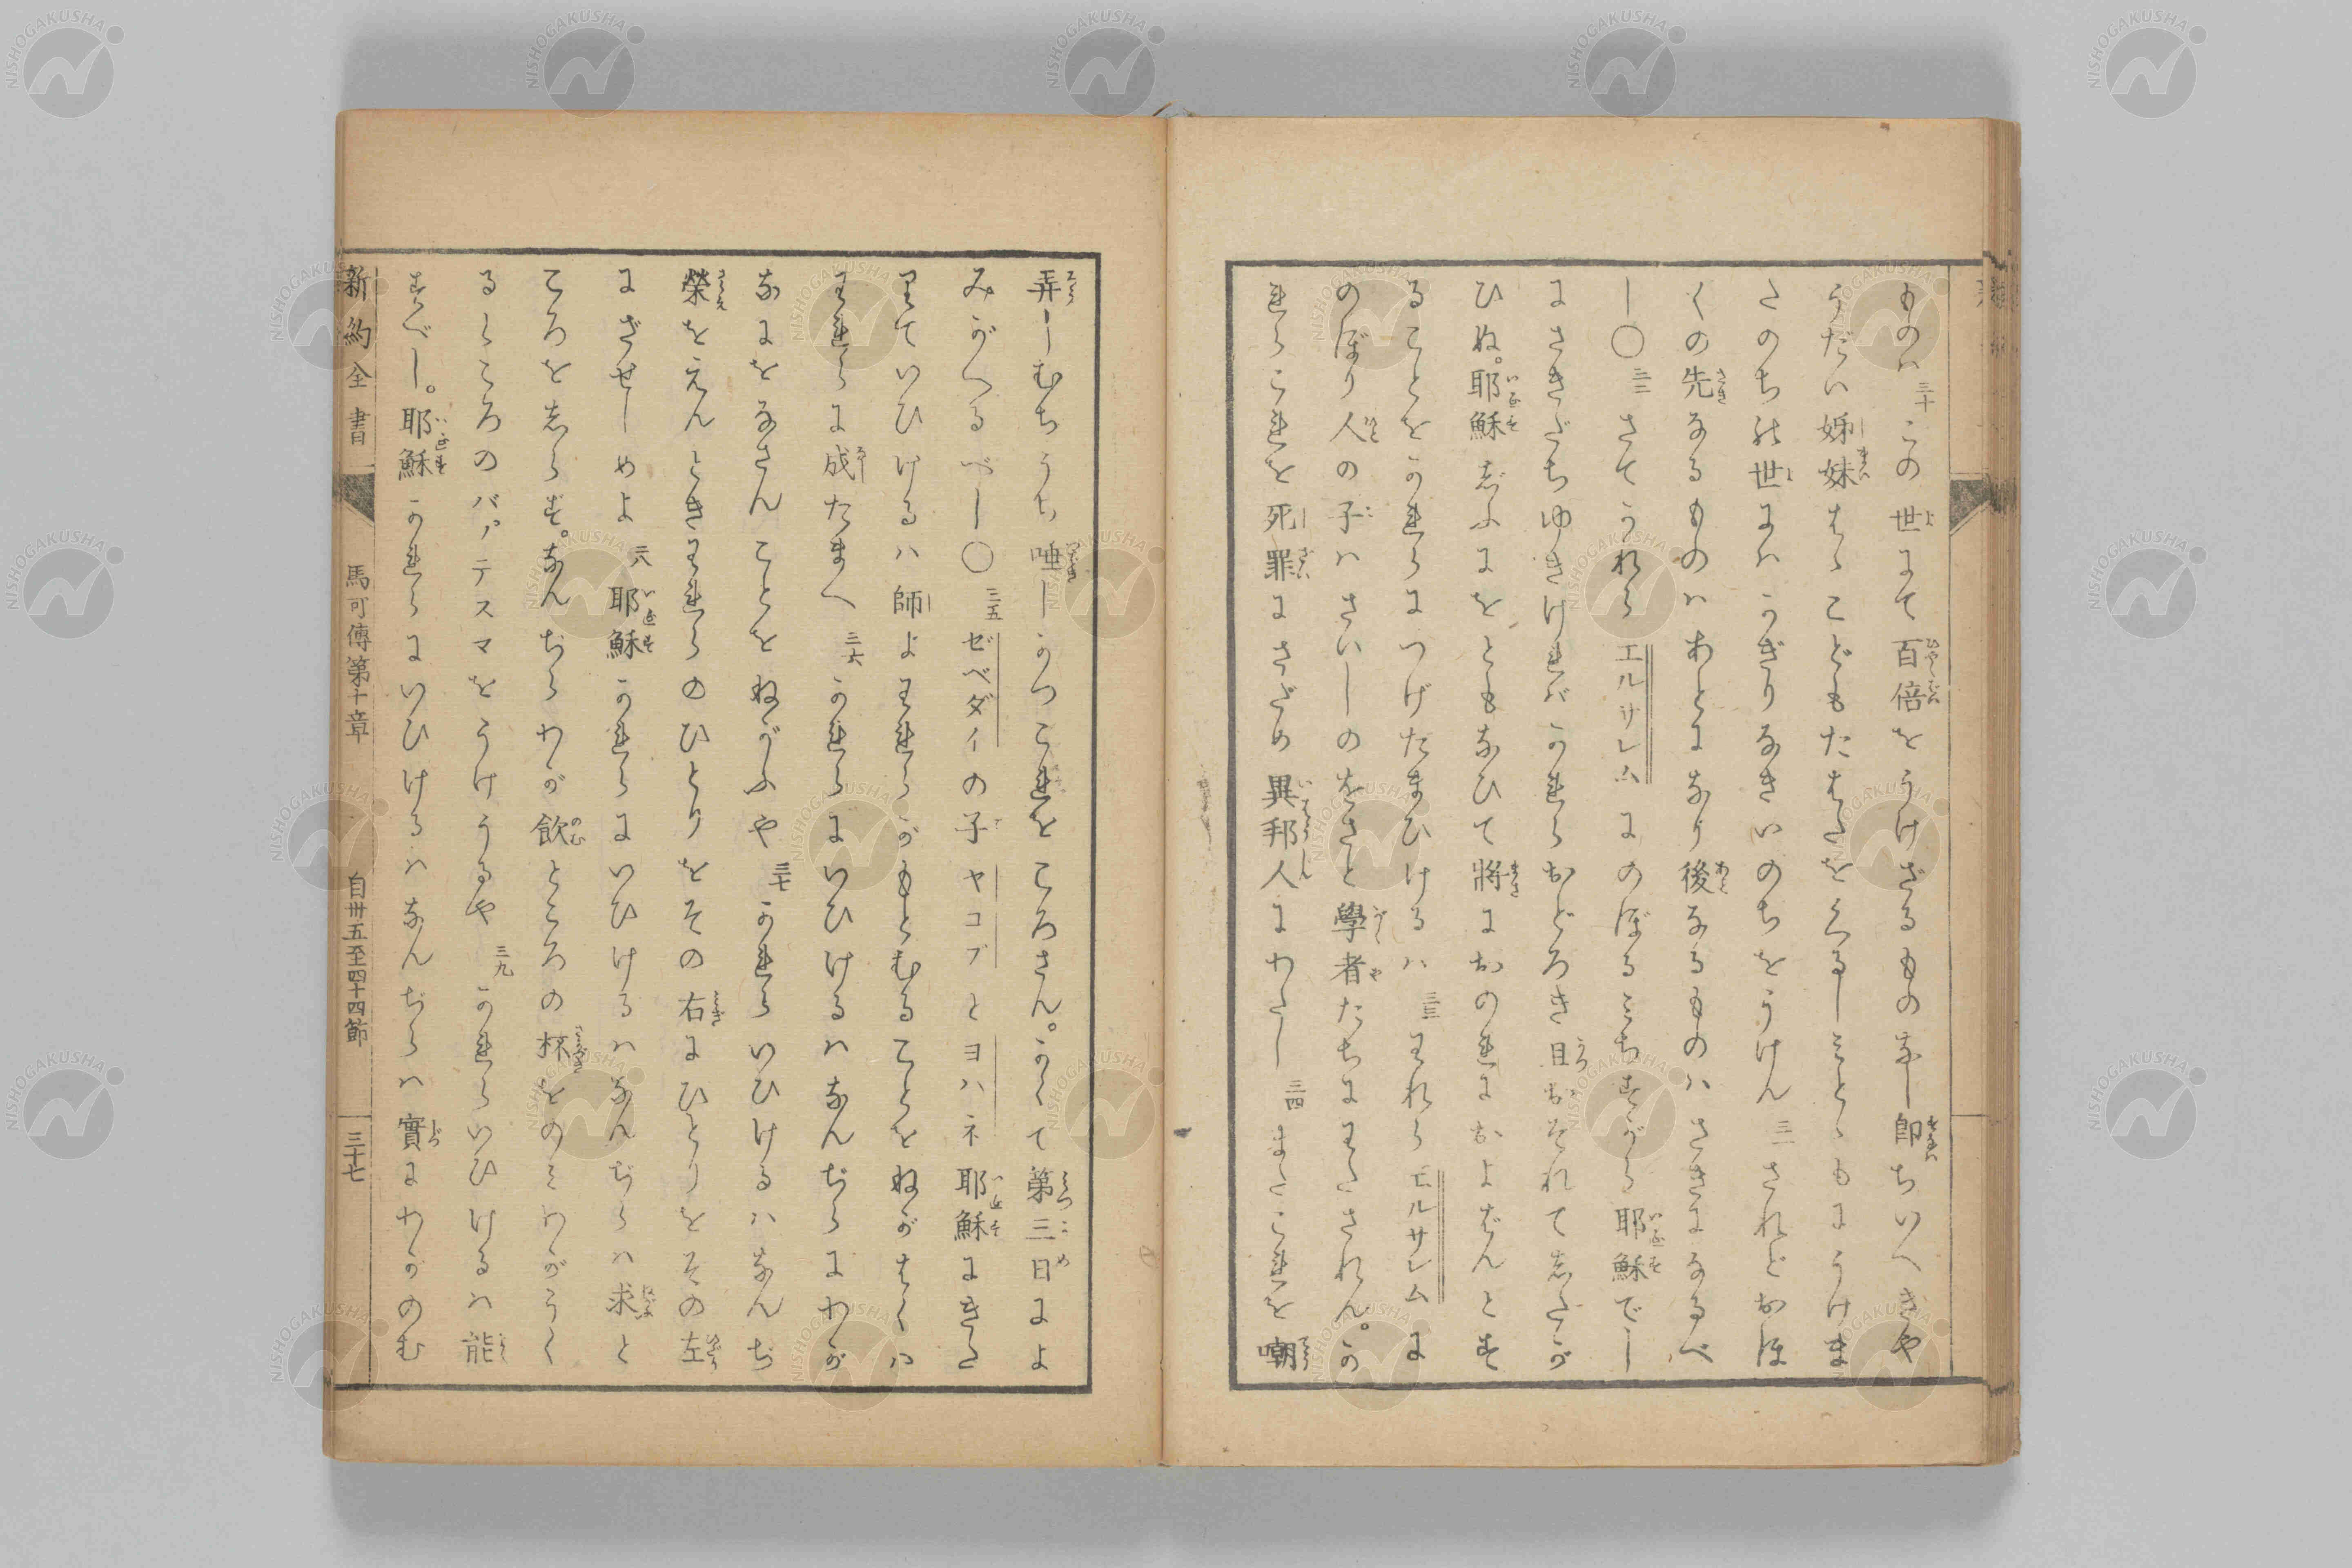 ものハ三十この世にて百倍をうけざるものなし即ちいへきや
うだい姊妹はゝこどもたはたをくるしみとゝもにうけま
たのち能世にハかぎりなきいのちをうけん三一されどおほ
くの先なるものハあとになり後なるものハさきになるべ
し〇三二さてかれらエルサレムにのぼるみちすがら耶穌でし
にさきだちゆきけれバかれらおどろき且おそれてしたが
ひぬ。耶穌じふにをともなひて將におのれにおよばんとす
ることをかれらにつげたまひけるハ三三われらエルサレムに
のぼり人の子ハさいしのをさと學者たちにわたされん。か
れらこれを死罪にさだめ異邦人にわたし三四またこれを嘲
弄しむちうち唾しかつこれをころさん。かくて第三日によ
みがへるべし〇三五ゼベダイの子ヤコブとヨハネ耶穌にきた
りていひけるハ師よわれらがもとむることをねがはくハ
われらに成たまへ三六かれらにいひけるハなんぢらにわが
なにをなさんことをねがふや三七かれらいひけるハなんぢ
榮をえんときわれらのひとりをその右にひとりをその左
にざせしめよ三八耶穌かれらにいひけるハなんぢらハ求と
ころをしらず。なんぢらわが飲ところの杯をのみわがうく
るところのバアテスマをうけうるや三九かれらいひけるハ能
すべし。耶穌かれらにいひけるハなんぢらハ實にわがのむ
新約全書 馬可傳第十章 自卅五至四十四節 三十七
NISHOGAKUSHA